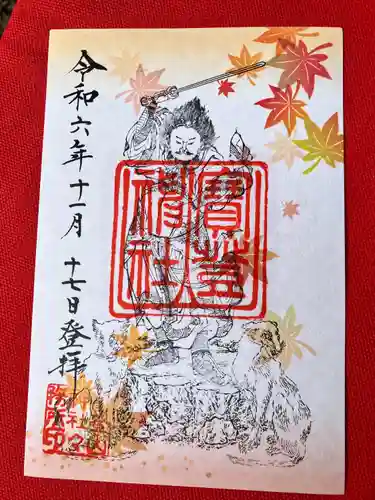 令和六年十一月十七日登拝
寶登山
神社